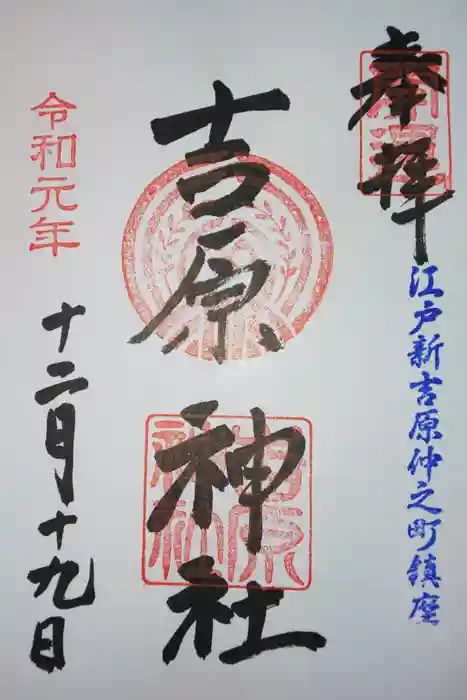 奉拝
江戸新吉原仲之町鎮座
吉原神社
令和元年
十二月十九日